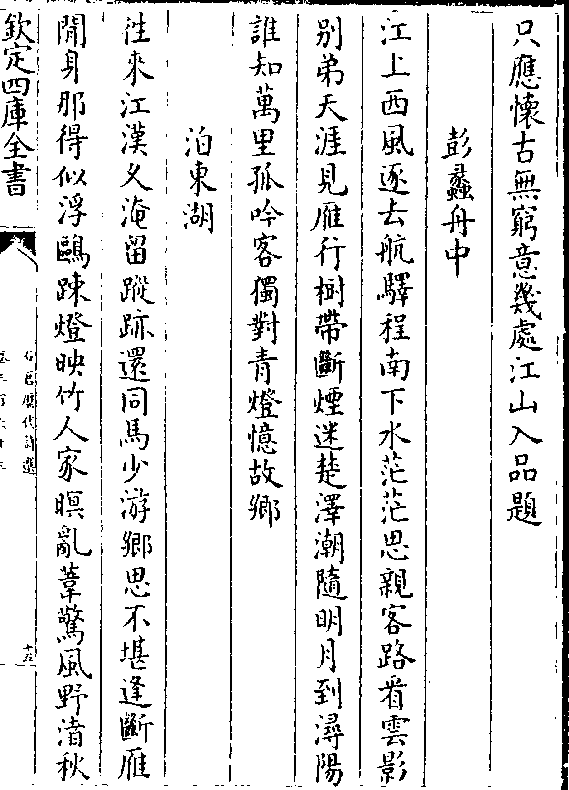 只應懐古無窮意幾處江山入品題
彭蠡舟中
江上西風逐去航驛程南下水茫茫思親客路看雲影
别弟天涯見雁行樹帶斷煙迷楚澤潮隨明月到潯陽
誰知萬里孤吟客獨對青燈憶故鄉
泊東湖
往來江漢久淹留蹤跡還同馬少游鄉思不堪逢斷雁
閒身那得似浮鷗踈燈映竹人家暝亂葦驚風野渚秋
欽定四庫全書